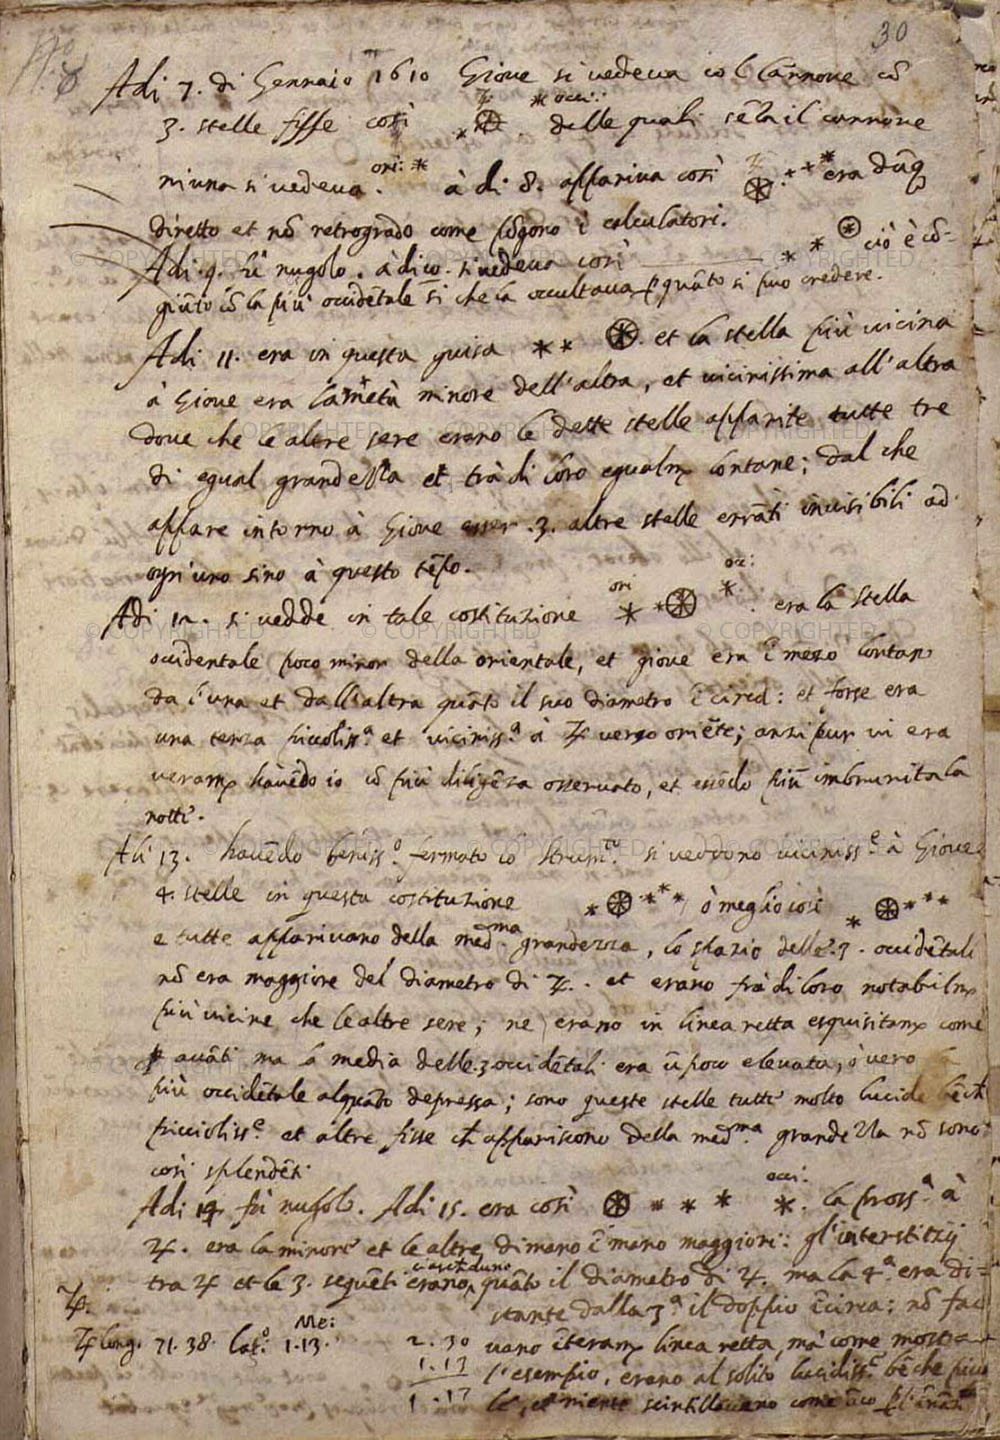 30
Adi 7. di Gennaio 1610 Giove si vedeva col Cannone cõ
3. stelle fisse così ♃ occi: delle quali sẽza il cannone
niuna si vedeva. ori: à dì 8. appariva così ♃ era dũq
diretto et nõ retrogrado come põgono i calculatori.
Adi 9. fù nugolo. à dì 10. si vedeva così ciò è cõ-
giũto cõ la più occidẽtale sì che la occultava p quãto si può credere.
Adi 11. era in questa guisa et la stella più vicina
à Giove era la metà minore dell'altra, et vicinissima all'altra
dove che le altre sere erano le dette stelle apparite tutte tre
di egual grandezza et trà di loro egualm lontane; dal che
appare intorno à Giove esser .3. altre stelle errãti invisibili ad
ogn'uno sino à questo tẽpo.
Adi 12. si vedde in tale costituzione ori occi: era la stella
occidentale poco minor della orientale, et giove era ĩ mezo lontano
da l'una et dall'altra quãto il suo diametro ĩ circa: et forse era
una terza piccoliss.ª et viciniss.ª à ♃ verso oriẽte; anzi pur vi era
veram havẽdo io cõ più diligẽza osservato, et essẽdo più imbrunita la
notte.
Adi 13. havẽdo beniss.º fermato lo strum.to si veddono viciniss.e à Giove
4. stelle in questa costituzione ò meglio così
e tutte apparivano della med.ma grandezza, lo spazio delle .3. occidẽtali
nõ era maggiore del diametro di ♃. et erano frà di loro notabilm
più vicine che le altre sere; ne erano in linea retta esquisitam come
avãti ma la media delle .3 occidẽtali era ũ poco elevata, ò vero la
più occidẽtale alquãto depressa; sono queste stelle tutte molto lucide bẽch
picciolissᵉ et altre fisse ch appariscono della med.ma grandezza nõ sono
così splendẽti
Adi 14. fù nugolo. Adi 15. era così occi: la pross.ª à
♃. era la minore et le altre di mano ĩ mano maggiori: gl'interstizij
tra ♃ et le 3. seguẽti erano ciascheduno quãto il diametro di ♃. ma la 4.ª era di-
stante dalla 3.ª il doppio ĩ circa: nõ fac
vano ĩteram linea retta, mà come mostra
l'esempio, erano al solito lucidiss.e bẽche picco
le, et niente scintillavano come ãco p l'inãti
♃.
♃ long. 71.38. lat.º 1.13. Me:
2.30
1.13
1.17